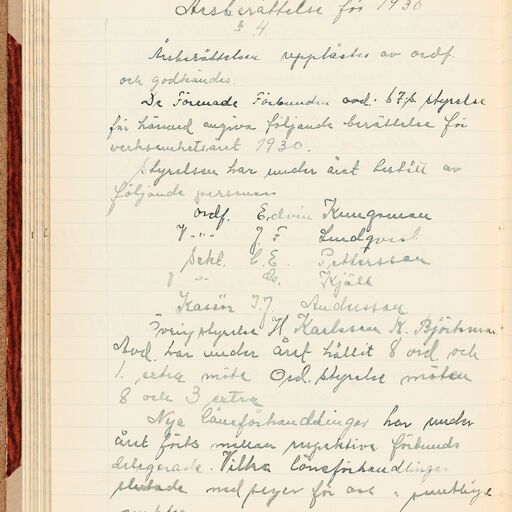 Årsberättelse för 1930
§ 4.
Årsberättelsen upplästes av ordf.
och godkändes.
De Förenade Förbunden avd. 67 styrelse
får härmed angiva följande berättelse för
verksamhetsåret 1930.
Styrelsen har under året bestått av
följande personer
ordf. Edvin Kungsman
V -"- J F Lindqvist
Sekl. C. E. Pettersson
V -"- Kjäll
Kassör J. J Andersson
Övrig styrelse H Karlsson K. Björkman.
Avd. har under året hållit 8 ord. och
1. extra möte Ord. styrelse möten
8 och 3 extra
Nya löneförhandlingar har under
året förts mellan respektive förbunds
delegerade. Vilka löneförhandlingar
slutade med seger för oss